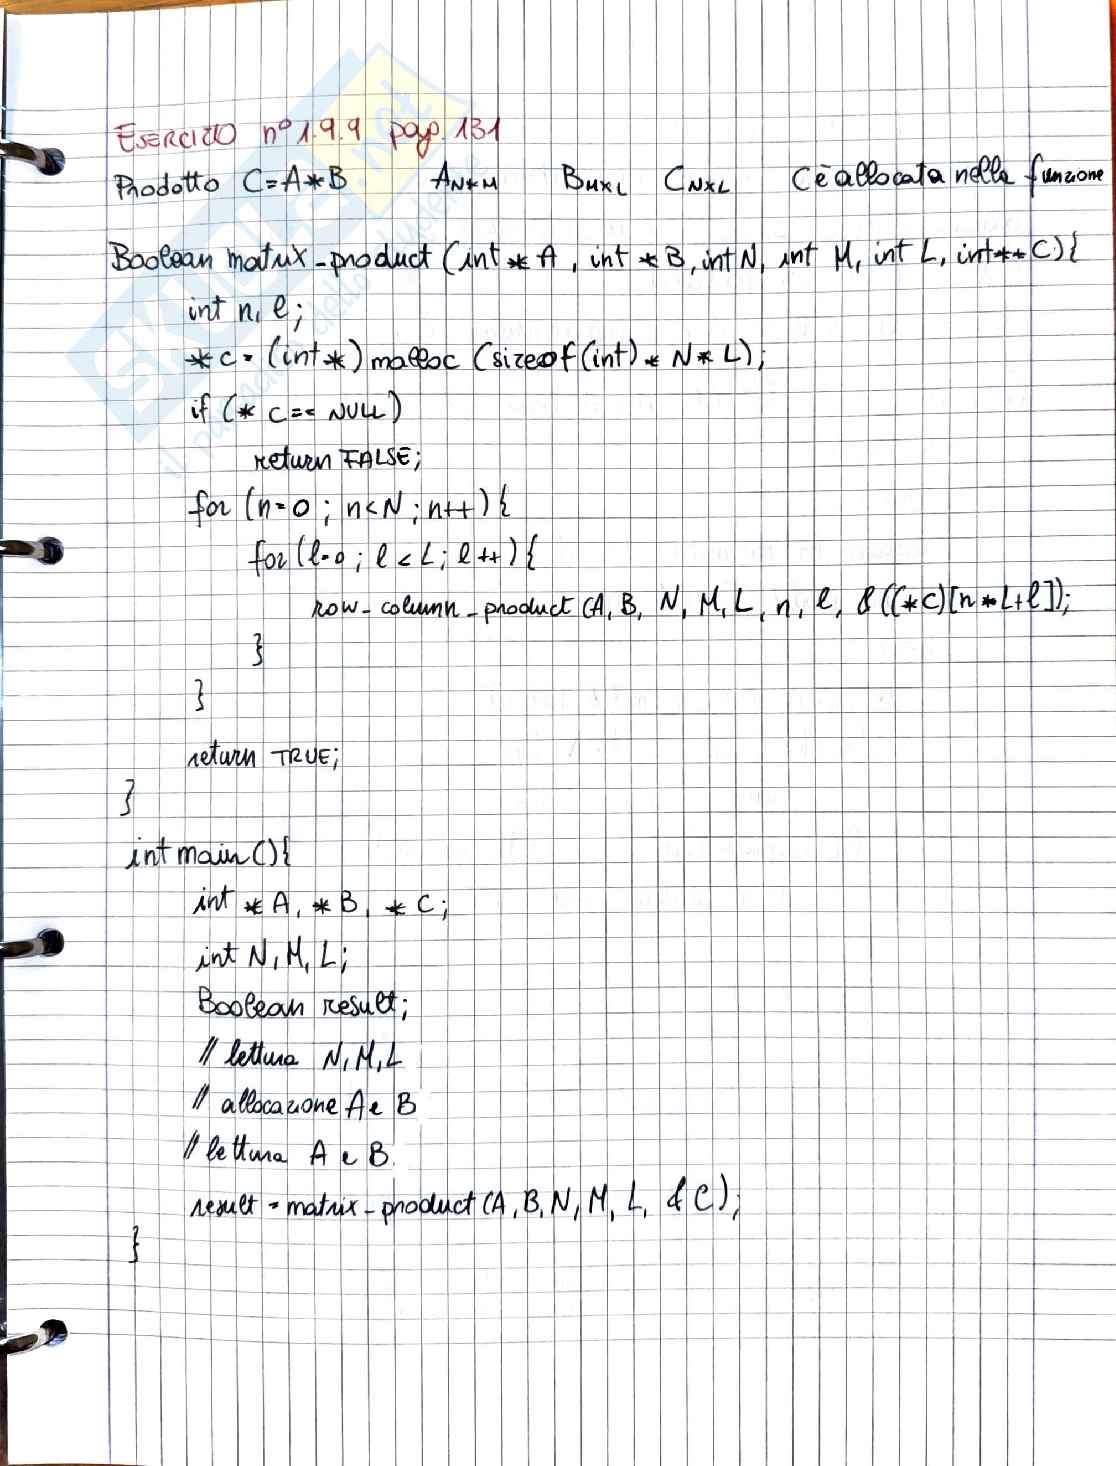 ESERCIZIO nº 1.9.9 pag. 131
Prodotto C=A*B A N*M B M×L C N×L C è allocata nella funzione
Boolean matrix_product (int *A, int *B, int N, int M, int L, int** C){
int n, l;
*C = (int*) malloc (sizeof(int) * N * L);
if (*C == NULL)
return FALSE;
for (n=0 ; n<N ; n++){
for (l=0 ; l<L ; l++){
row_column_product (A, B, N, M, L, n, l, &((*C)[n*L+l]);
}
}
return TRUE;
}
int main(){
int *A, *B, *C;
int N, M, L;
Boolean result;
// lettura N, M, L
// allocazione A e B
// lettura A e B.
result = matrix_product (A, B, N, M, L, &C);
}
SKUOLA.net
il paradiso dello studente